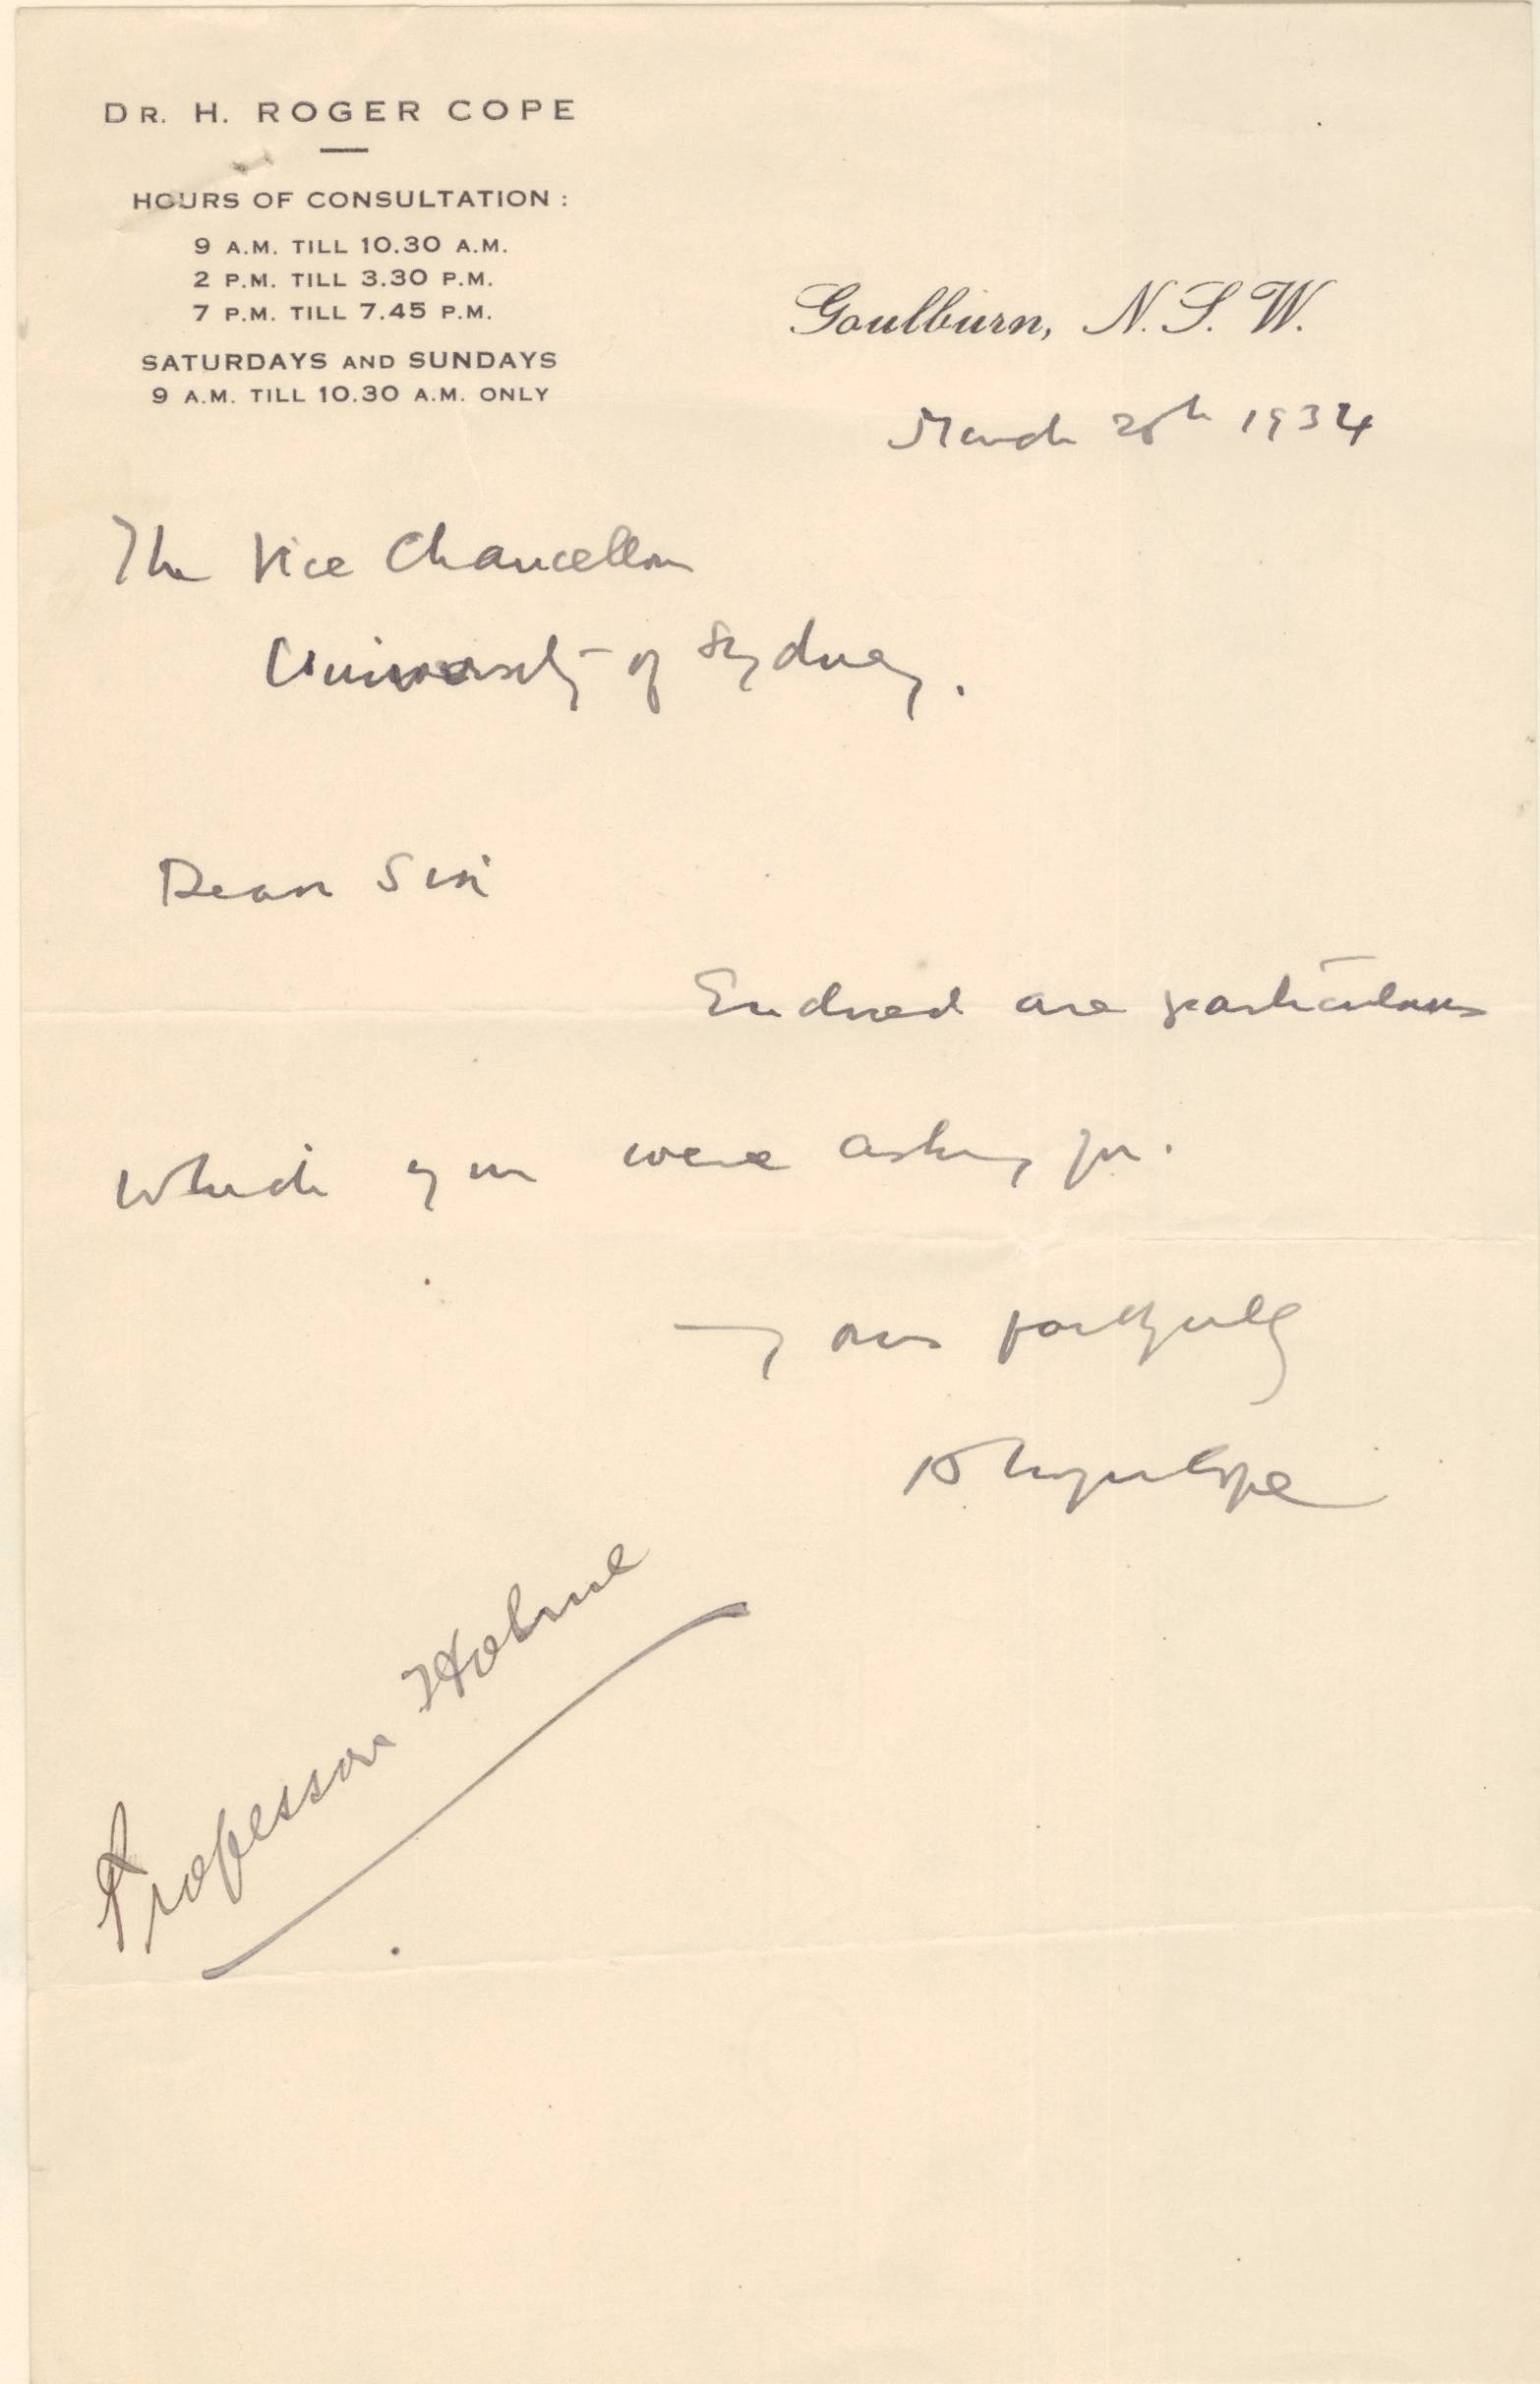 DR. H. ROGER COPE
HOURS OF CONSULTATION :
9 A.M. TILL 10.30 A.M.
2 P.M. TILL 3.30 P.M.
7 P.M. TILL 7.45 P.M.
SATURDAYS AND SUNDAYS
9 A.M. TILL 10.30 A.M. ONLY
Goulburn, N. S. W.
March 1934
The Vice Chancellor
University of Sydney.
Dear Sir
Enclosed are particulars
which you were asking for.
Yours faithfully
H Roger Cope
Professor Holme